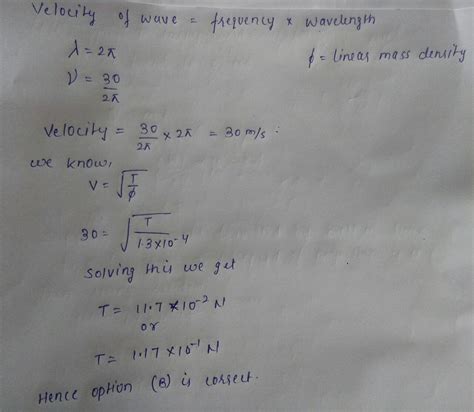 Velocity of wave = frequency x wavelength
λ = 2π
ϕ = linear mass density
ν = 30/2π
Velocity = 30/2π x 2π = 30 m/s :
we know,
V = √(T/ϕ)
30 = √(T/1.3×10⁻⁴)
solving this we get
T = 11.7 × 10⁻² N
or
T = 1.17 × 10⁻¹ N
Hence option (B) is correct.